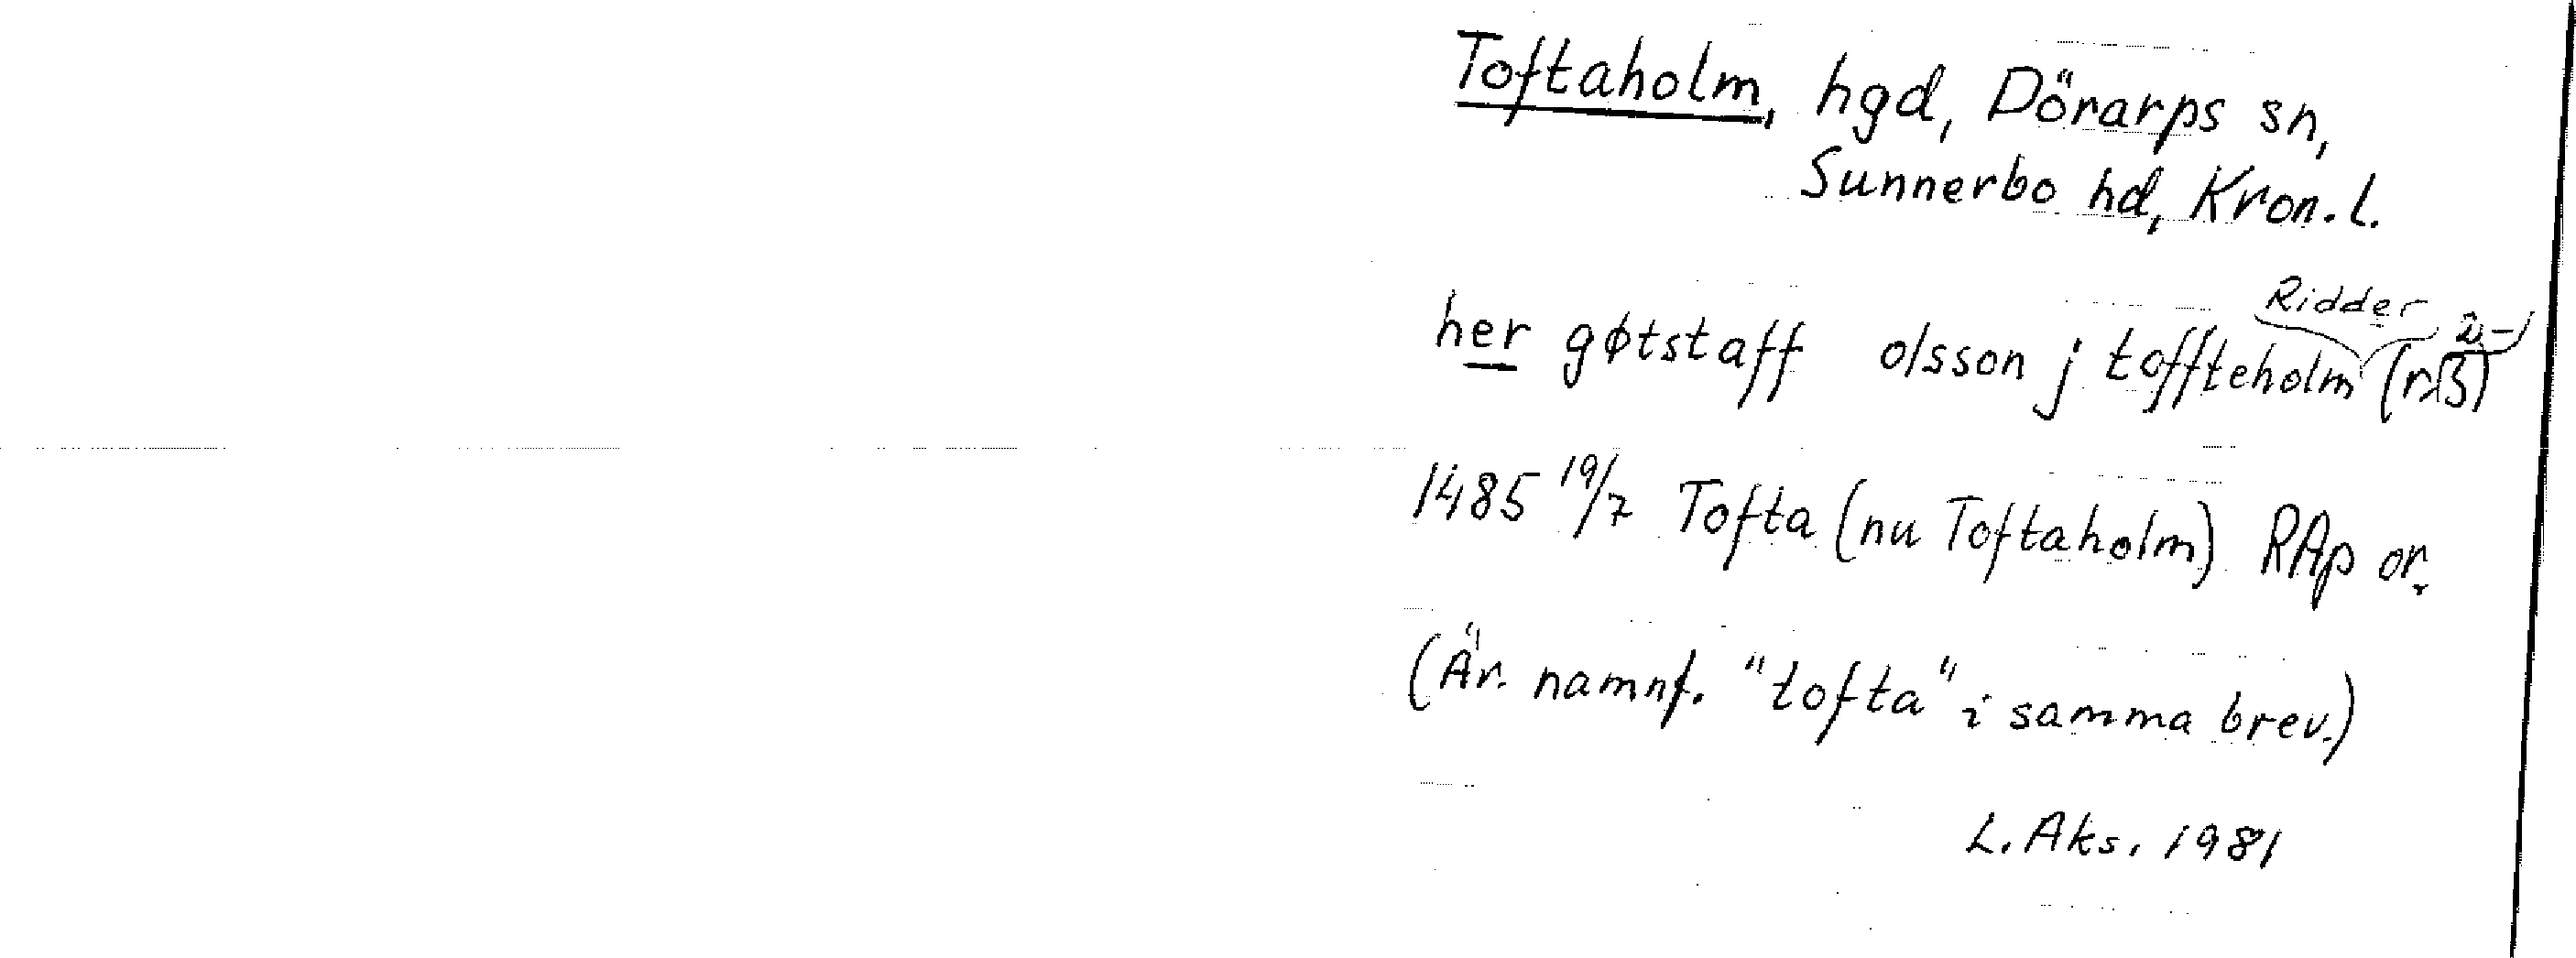 Toftaholm, hgd, Dörarps sn,
Sunnerbo hd, Kron.l.
Ridder
her gøtstaff olsson j toffteholm
1485 19/7 Tofta (nu Toftaholm) RAp or.
(Är. namnf. "tofta" i samma brev.)
L. Aks. 1981